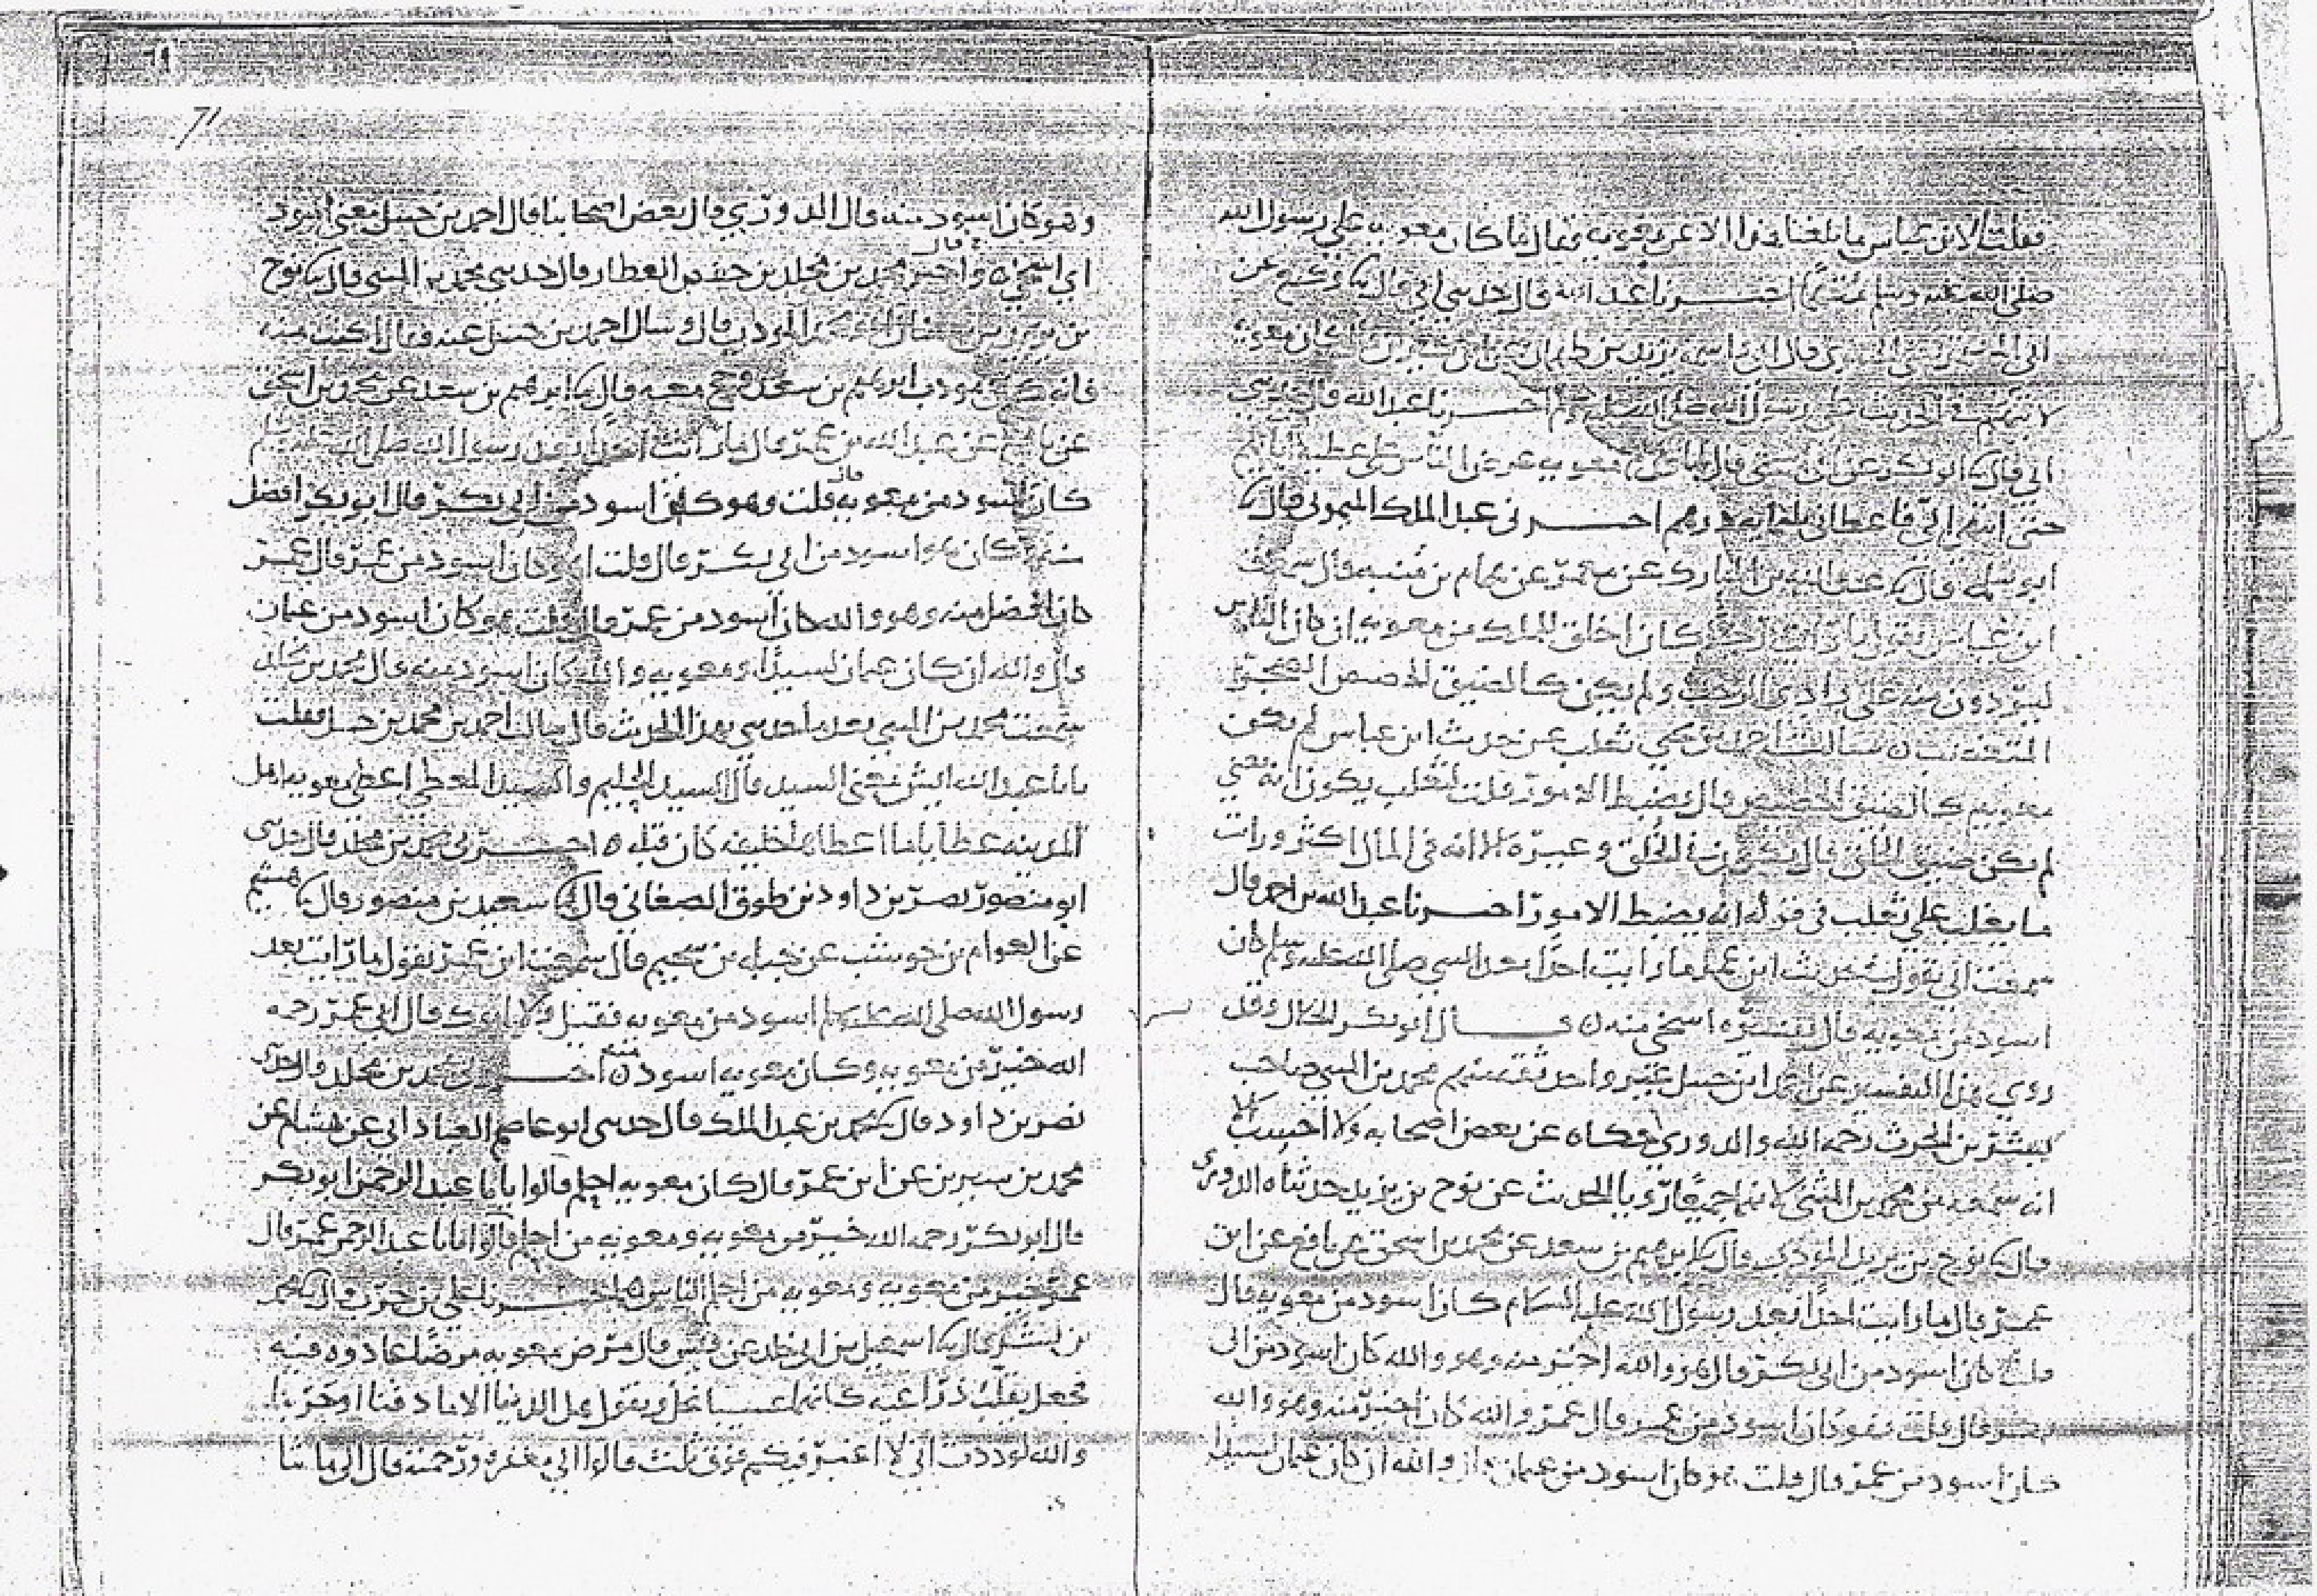 فقلت لابن عباس ما بلغنا هذا الا عن معويه فقال ما كان معويه على رسول الله
صلى الله عليه وسلم متهما اخبرنا عبد الله قال حدثني ابي قال وكيع عن
ابي قال ابو بكر عن ابي اسحق قال لما قدم معويه عرض الناس على عطيه ابايهم
حتى انتهى الي فاعطاني ثلثمايه درهم اخبرني عبد الملك الميموني قال
ابو سلمه قال عبد الله بن المبارك عن معمر عن همام بن منبه قال سمعت
ابن عباس يقول ما رايت احدا كان اخلق للملك من معويه ان كان الناس
ليردون منه على وادي الرحب ولم يكن كالضيق الحصص الضجر
المتغضب ه سالت احمد بن يحيى ثعلب عن حديث ابن عباس لم يكن
معويه كالضيق الحصص قال يضبط الامور قلت لثعلب يكون انه يعني
لم يكن ضيق الخلق قال يكون ضيق الخلق وغيره الا انه في المال اكثر ورايت
ما يغلب على ثعلب في قوله انه يضبط الامور اخبرنا عبد الله بن احمد قال
سمعت ابي يقول حديث ابن عمر ما رايت احدا بعد النبي صلى الله عليه وسلم كان
اسود من معويه قال تفسيره اسخى منه ه قال ابو بكر الخلال وقد
روى هذا التفسير عن احمد ابن حنبل غير واحد ثقه منهم محمد بن المثنى صاحب
بشر بن الحرث رحمه الله والدوري حكاه عن بعض اصحابه ولا احسب الا
انه سمعه من محمد بن المثنى لانهما جميعا رويا الحديث عن نوح بن يزيد حدثناه الدوري
قال نوح بن يزيد المودب قال ابرهيم بن سعد عن محمد بن اسحق عن نافع عن ابن
عمر قال ما رايت احدا بعد رسول الله عليه السلام كان اسود من معويه قال
قلت كان اسود من ابي بكر قال هو والله اخير منه وهو والله كان اسود من ابي
بكر قال قلت فهو كان اسود من عمر قال عمر والله كان اخير منه وهو والله
كان اسود من عمر قال قلت هو كان اسود من عثمان قال والله ان كان عثمان لسيدا
وهو كان اسود منه قال الدوري قال بعض اصحابنا قال احمد بن حنبل معنى اسود
اي اسخى ه واخبرني محمد بن مخلد بن حفص العطار قال حدثني محمد بن المثنى قال نوح
بن يزيد المودب قال سال احمد بن حنبل عنه فقال اكتب عنه
فانه كان مودب ابرهيم بن سعد وحج معه قال ابرهيم بن سعد عن محمد بن اسحق
عن نافع عن عبد الله بن عمر قال ما رايت احدا بعد رسول الله صلى الله عليه وسلم
كان اسود من معويه قال قلت وهو كان اسود من ابي بكر قال ابو بكر افضل
منه كان هو اسود من ابي بكر قال قلت هو كان اسود من عمر قال عمر
كان افضل منه وهو والله كان اسود من عمر قال قلت هو كان اسود من عثمان
قال والله ان كان عثمان لسيدا ومعويه والله كان اسود منه قال محمد بن مخلد
سمعت محمد بن المثنى بعد ما حدثني بهذا الحديث قال سالت احمد بن محمد بن حنبل فقلت
يابا عبد الله ايش معنى السيد قال السيد الحليم والسيد المعطي اعطى معويه اهل
المدينه عطايا ما اعطاها خليفه كان قبله ه اخبرني محمد بن مخلد قال حدثني
ابو منصور نصر بن داود بن طوق الصغاني قال سعيد بن منصور قال هشيم
عن العوام بن حوشب عن جبله بن سحيم قال سمعت ابن عمر يقول ما رايت بعد
رسول الله صلى الله عليه وسلم اسود من معويه فقيل ولا ابوك قال ابي عمر رحمه
الله خير من معويه وكان معويه اسود منه ه اخبرني محمد بن مخلد قال حدثني
نصر بن داود قال محمد بن عبد الملك قال حدثني ابو عاصم العباداني عن هشام عن
محمد بن سيرين عن ابن عمر قال كان معويه احلم قالوا يابا عبد الرحمن ابو بكر
قال ابو بكر رحمه الله خير من معويه ومعويه من احلم قالوا يابا عبد الرحمن عمر قال
عمر خير من معويه ومعويه من احلم الناس ه اخبرنا علي بن حرب قال محمد
بن بشر قال اسمعيل بن ابي خالد عن قيس قال مرض معويه مرضا عادوه فيه
فجعل يقلب ذراعيه كانهما عسيبا نخل ويقول هل الدنيا الا ما ذقنا او جربنا
والله لوددت اني لا اغبر فيكم فوق ثلث قالوا الى مغفره ورحمته قال الى ما شا